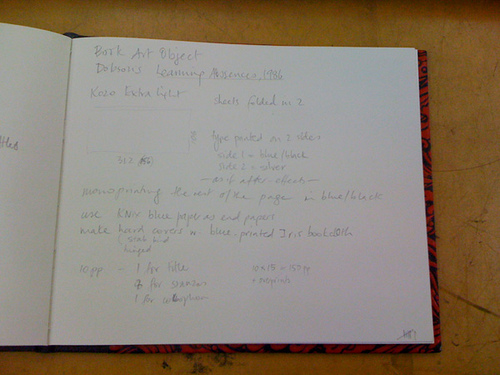 Book Art Object
Dobson's Learning Absences, 1986
Kozo Extra light
sheets folded in 2
type printed on 2 sides
side 1 = blue/black
side 2 = silver
as if after-effects
312
monoprinting the rest of the pages in blue/black
use KNW blue paper as end papers
make hard covers w. blue-printed Iris bookcloth
10pp - 1 for title
8 for stanzas
1 for colophon
10 x 15 = 150pp
+ misprints